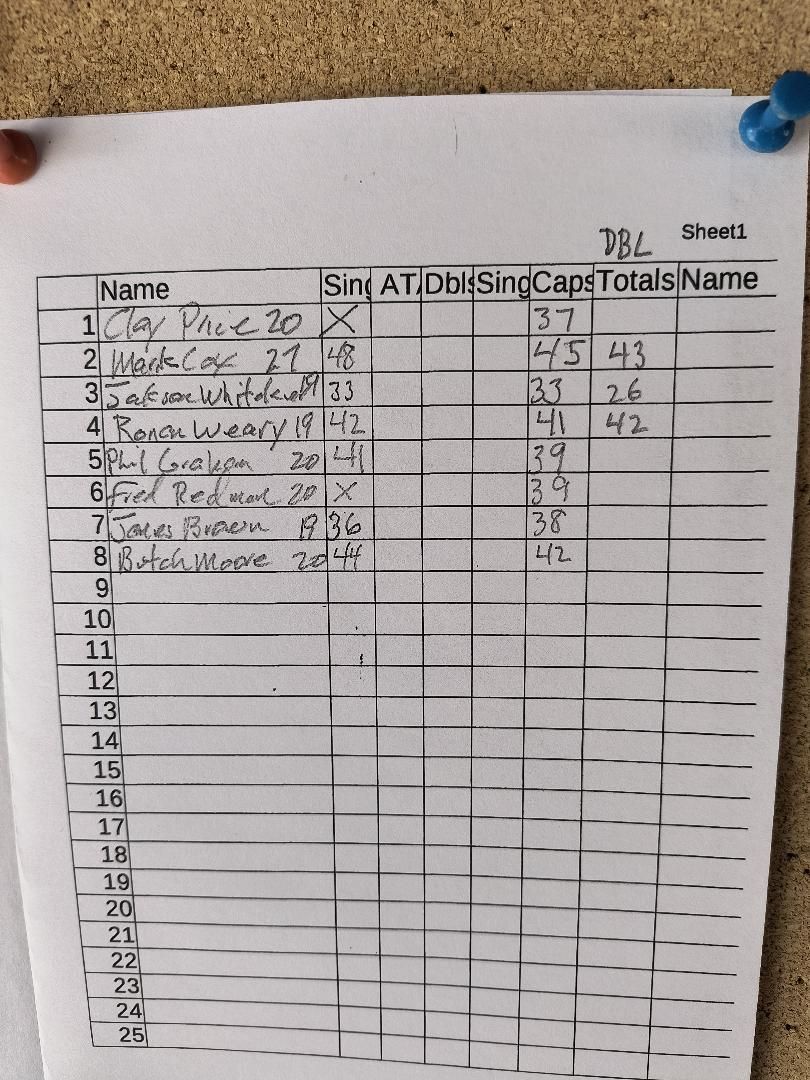 DBL Sheet1
Name Sing AT Dbls Sing Caps Totals Name
1 Clay Price 20 X 37
2 Mark Cox 27 48 45 43
3 Jackson 19 33 33 26
4 Ronan Weary 19 42 41 42
5 Phil Graham 20 41 39
6 Fred Redmore 20 X 39
7 James Brown 19 36 38
8 Butch Moore 20 44 42
9
10
11
12
13
14
15
16
17
18
19
20
21
22
23
24
25